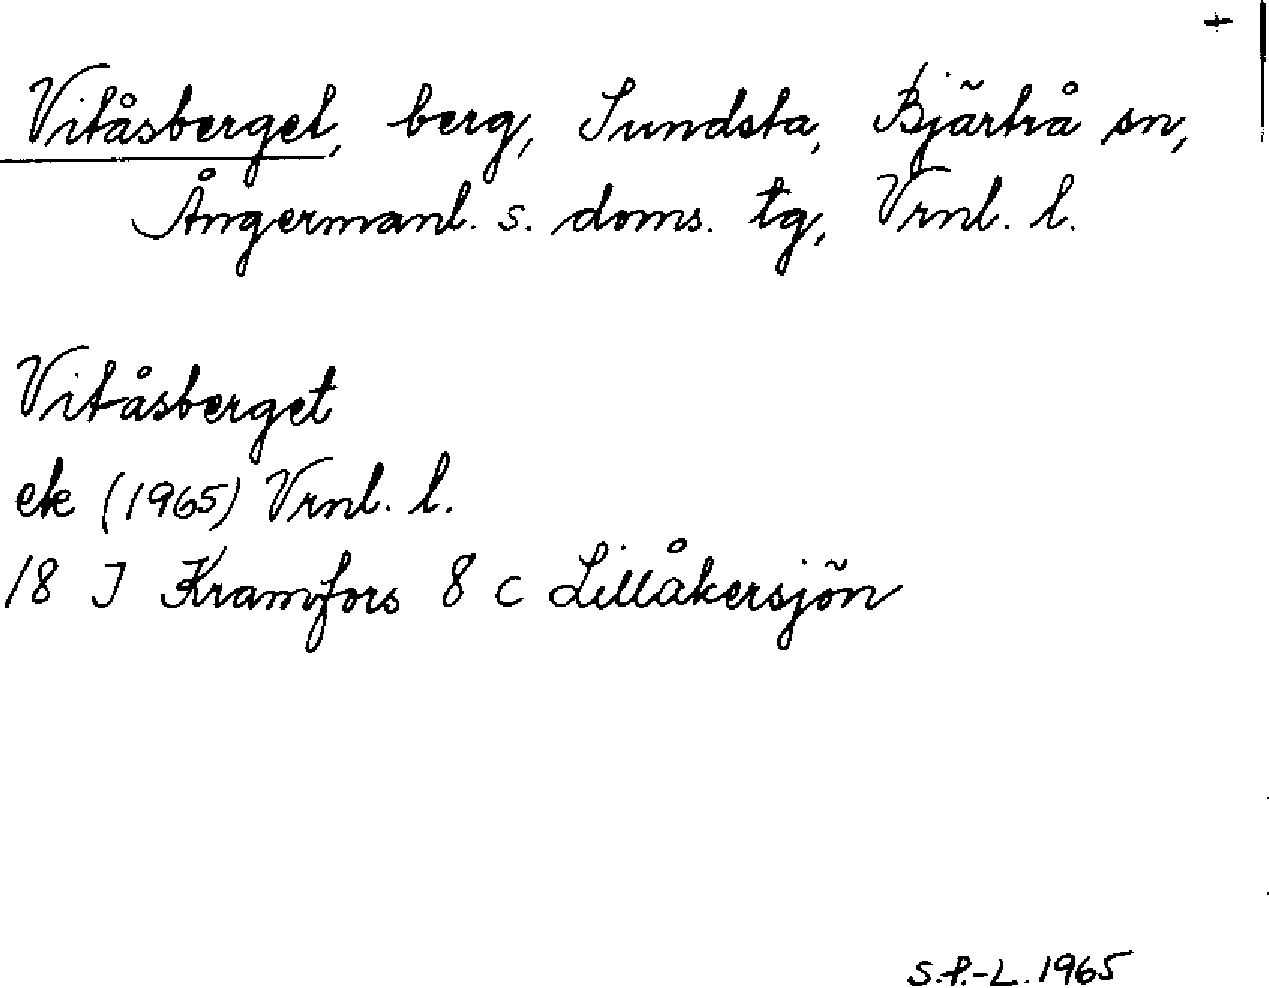 +
Vitåsberget, berg, Sundsta, Bjärtrå sn,
Ångermanl. s. doms. tg, Vrnl. l.
Vitåsberget
ek (1965) Vrnl. l.
18 J Kramfors 8 c Lillåkersjön
S.P.-L. 1965